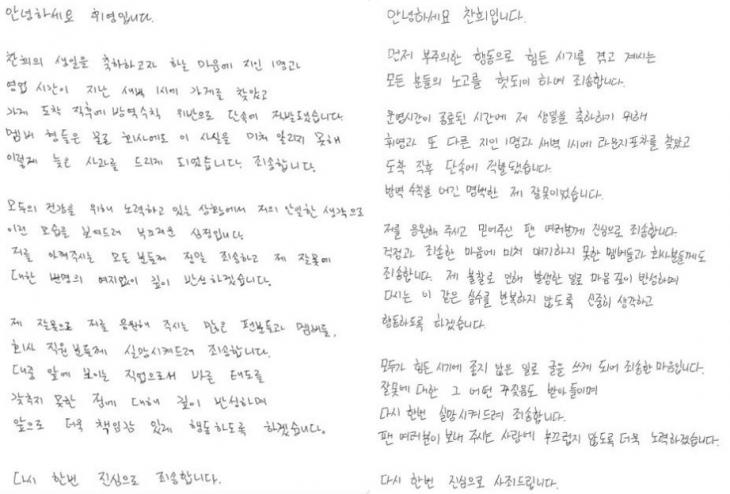 안녕하세요 휘영입니다.
찬희의 생일을 축하하고자 하는 마음에 지인 1명과
영업 시간이 지난 새벽 1시에 가게를 찾았고
가게 도착 직후에 방역수칙 위반으로 단속에 적발됐습니다.
멤버 형들은 물론 회사에도 이 사실을 미처 알리지 못해
이렇게 늦은 사과를 드리게 되었습니다. 죄송합니다.
모두의 건강을 위해 노력하고 있는 상황에서 저의 안일한 생각으로
이런 모습을 보여드려 부끄러운 심정입니다.
저를 아껴주시는 모든 분들께 정말 죄송하고 제 잘못에
대한 변명의 여지없이 깊이 반성하겠습니다.
제 잘못으로 저를 응원해 주시는 많은 팬분들과 멤버들,
회사 직원분들께 실망시켜드려 죄송합니다.
대중 앞에 보이는 직업으로서 바른 태도를
갖추지 못한 점에 대해 깊이 반성하며
앞으로 더욱 책임감 있게 행동하도록 하겠습니다.
다시 한번 진심으로 죄송합니다.
안녕하세요 찬희입니다.
먼저 부주의한 행동으로 힘든 시기를 겪고 계시는
모든 분들의 노고를 헛되이 하여 죄송합니다.
운영시간이 종료된 시간에 제 생일을 축하하기 위해
휘영과 또 다른 지인 1명과 새벽 1시에 라운지포차를 찾았고
도착 직후 단속에 적발됐습니다.
방역 수칙을 어긴 명백한 제 잘못이었습니다.
저를 응원해 주시고 믿어주신 팬 여러분께 진심으로 죄송합니다
걱정과 죄송한 마음에 미처 얘기하지 못한 멤버들과 회사분들께도
죄송합니다. 제 불찰로 인해 발생한 일로 마음 깊이 반성하며
다시는 이 같은 실수를 번복하지 않도록 신중히 생각하고
행동하도록 하겠습니다.
모두가 힘든 시기에 좋지 않은 일로 글을 쓰게 되어 죄송한 마음입니다.
잘못에 대한 그 어떤 꾸짖음도 받아들이며
다시 한번 실망시켜드려 죄송합니다.
팬 여러분이 보내 주시는 사랑에 부끄럽지 않도록 더욱 노력하겠습니다.
다시 한번 진심으로 사죄드립니다.